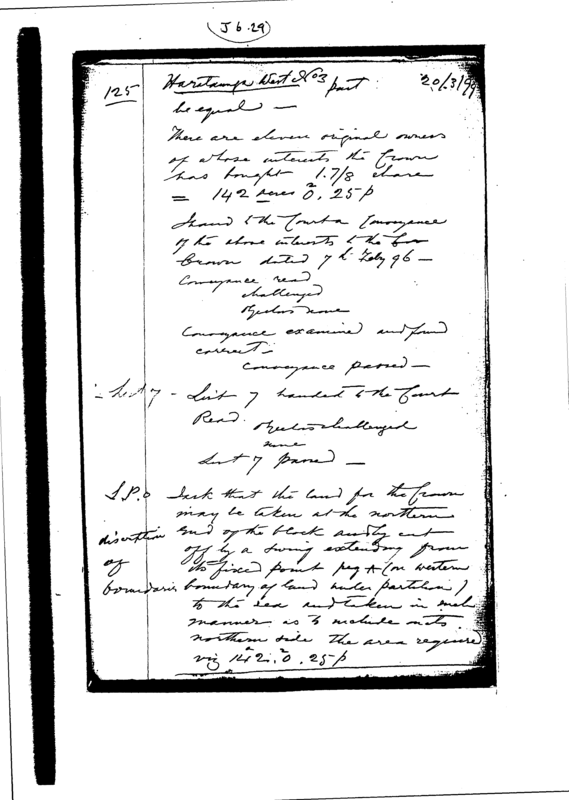 J 6.29
125
West No3 part
20/3/99
be equal —
There are eleven original owners
of whose interests the Crown
has bought 1.7/8 share
= 142 acres 0. 25p
I hand to the Court a Conveyance
of the above interests to the
Crown dated 7th Feby 96 —
Conveyance read
challenged
Objectors none
Conveyance examined and found
correct —
Conveyance passed —
List 7 - List 7 handed to the Court
Read. Objectors challenged
none
List 7 passed —
L.P.O
I ask that the land for the Crown
may be taken at the northern
end of the block and by cut
off by a swing extending from
a fixed point peg A (on western
boundary of land under partition)
to the sea and taken in such
manner as to include on its
northern side the area required
viz 142. 0. 25p
discription
of
boundaries